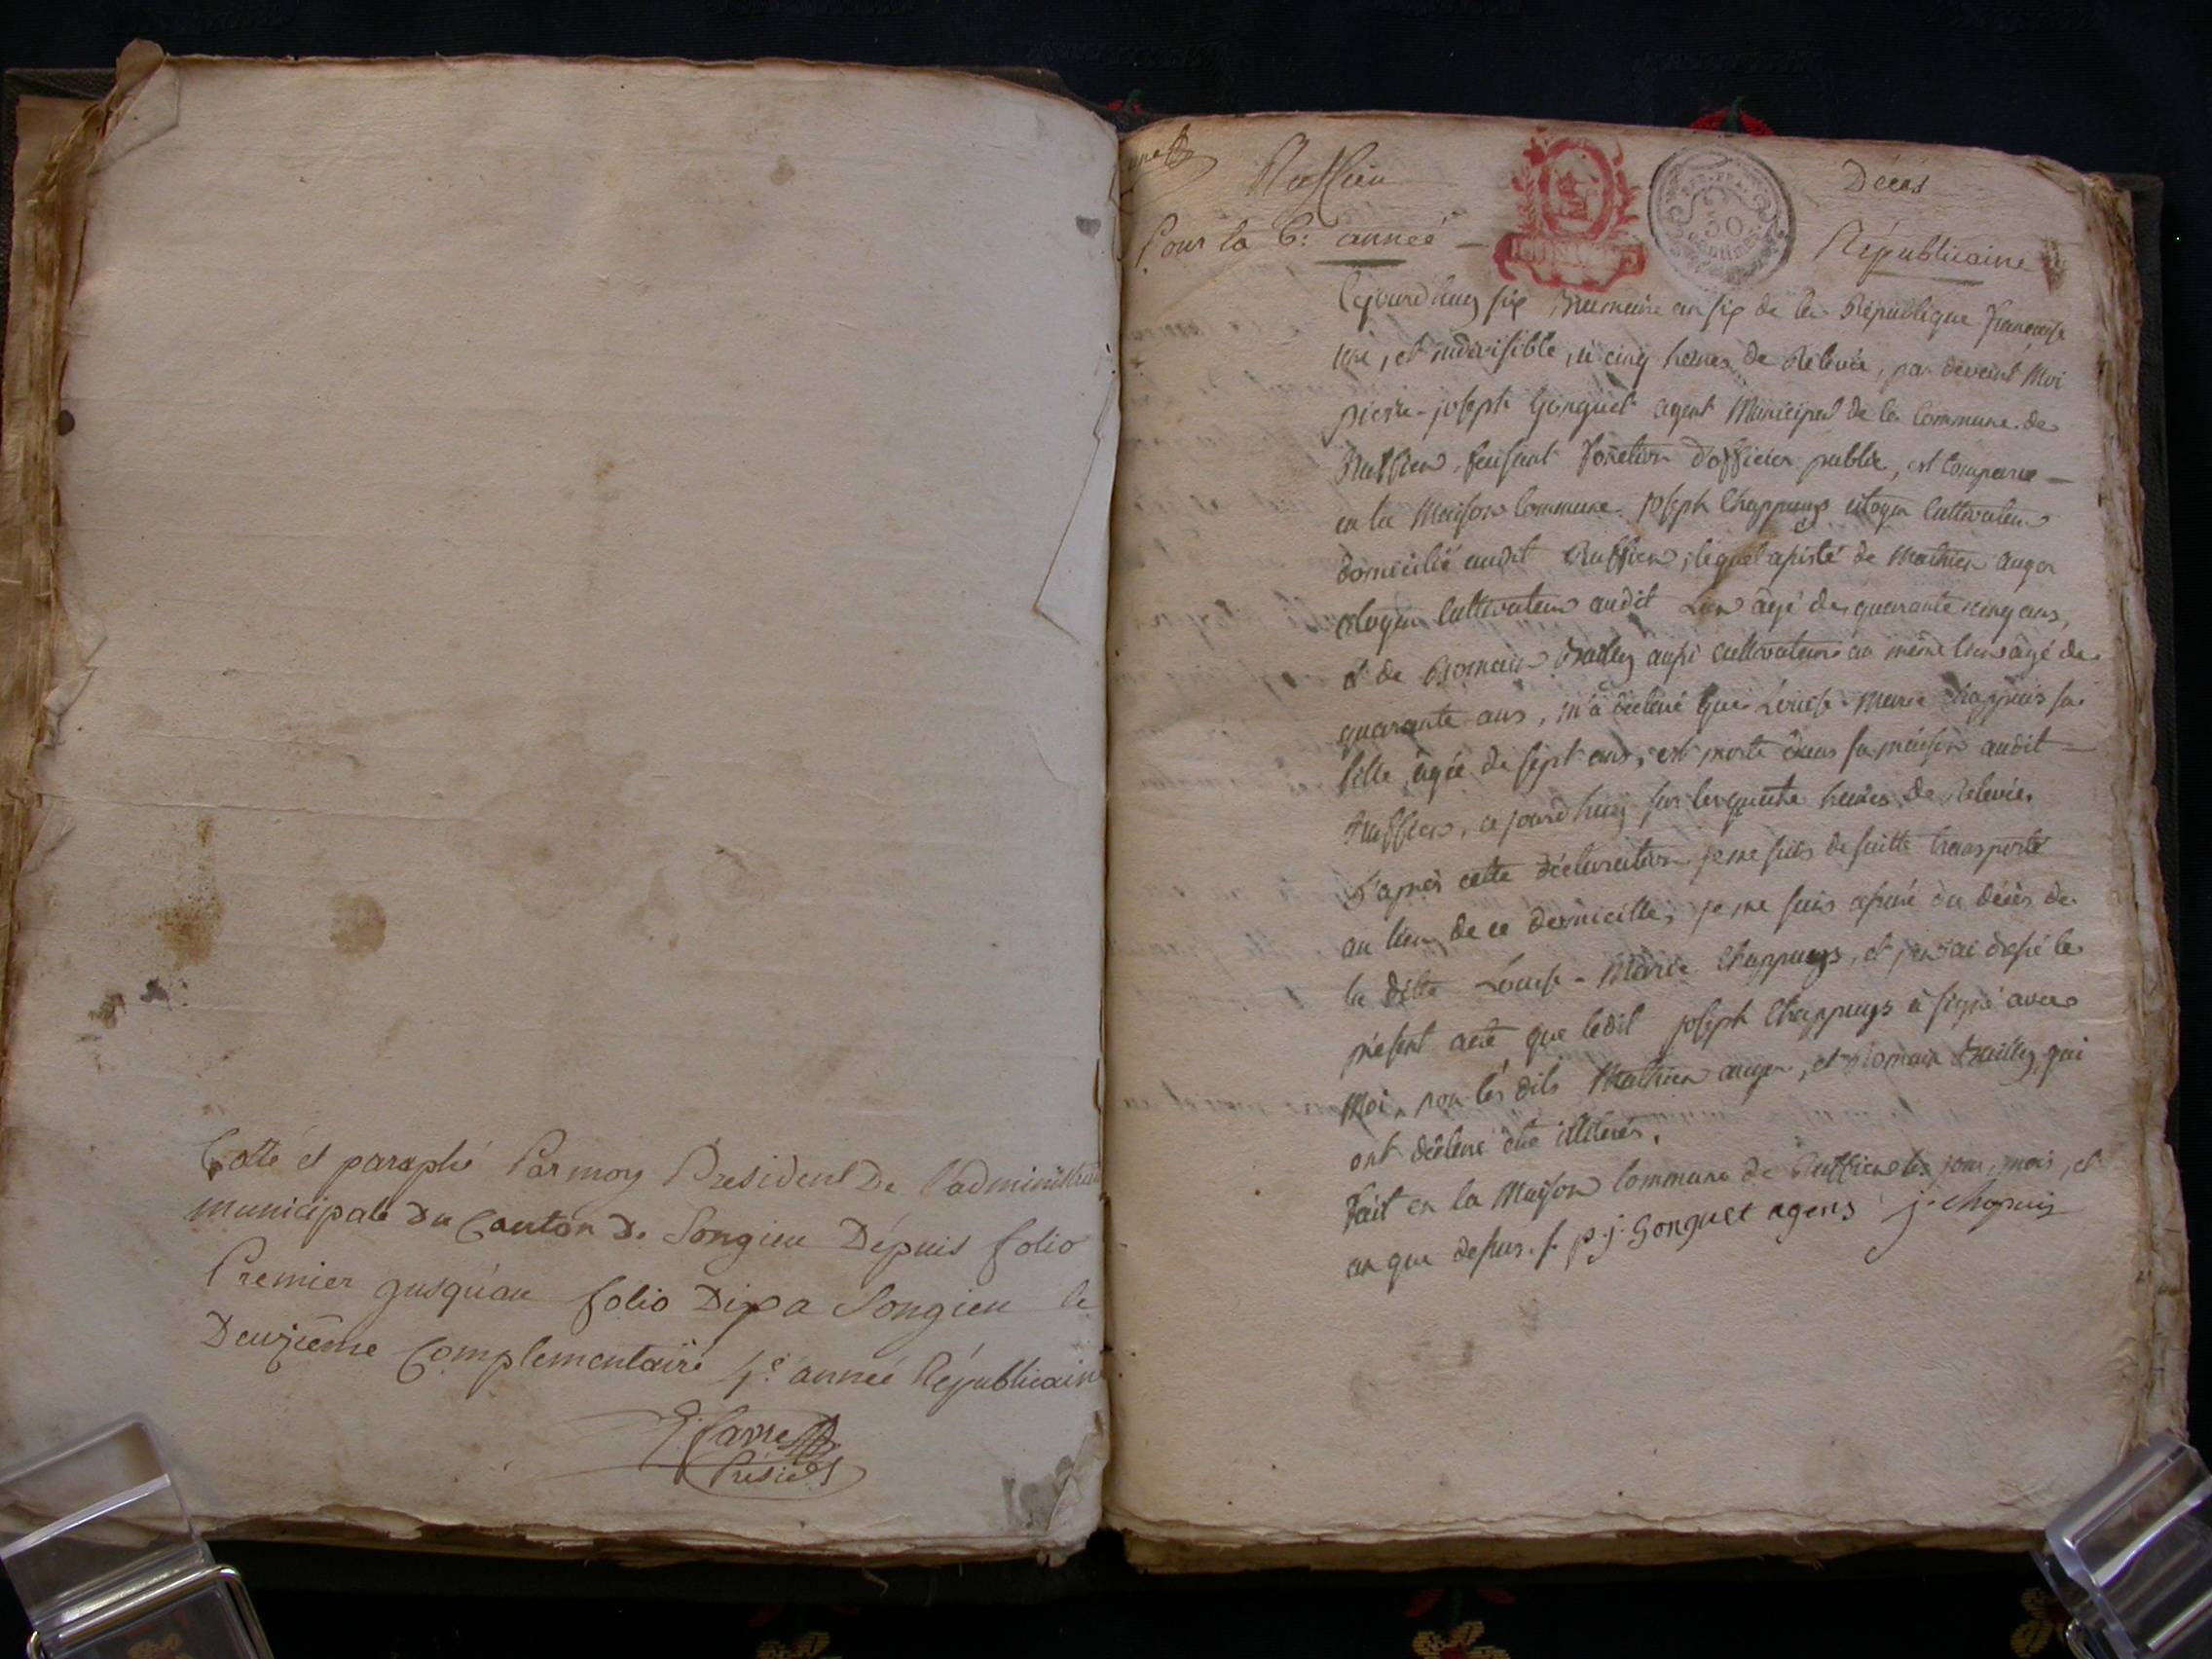 Cotté et paraphé Par moy President De l'administra
municipale Du Canton De Songieu Dépuis folio
Premier jusqu'au folio Dix a Songieu le
Deuxiéme Complementaire 4e année Républicain
Présidt
Ruffieu Décès
Pour la 6e année Républicaine
30 Centimes
Cejourdhuy six Brumaire an six de la République francaise
une, et indivisible, à cinq heures de Relevée, par devant Moi
pierre-joseph Gonguet agent Municipal de la Commune de
Ruffieu faisant fonction d'officier public, est comparu
en la Maison Commune joseph Chappuys citoyen Cultivateur
domicilié audit Ruffieu, lequel assisté de Mathieu auger
citoyen Cultivateur audit Lieu âgé de quarante cinq ans,
et de Romain aussi cultivateur au même lieu âgé de
quarante ans, m'a déclaré que Louise Marie Chappuis sa
fille, âgée de sept ans, est morte dans sa maison audit
Ruffieu, cejourdhuy sur les quatre heures de Relevée.
D'après cette déclaration je me suis de suitte transporté
au lieu de ce domicille, je me suis assuré du décès de
la ditte Louise-Marie Chappuys, et j'en ai dressé le
présent acte que ledit joseph Chappuys à signé avec
Moi, non les dits Mathieu auger, et Romain qui
ont déclaré être illiterés.
Fait en la Maison Commune de Ruffieu les jour, mois, et
an que dessus. p.j. Gonguet agens j. chapuis